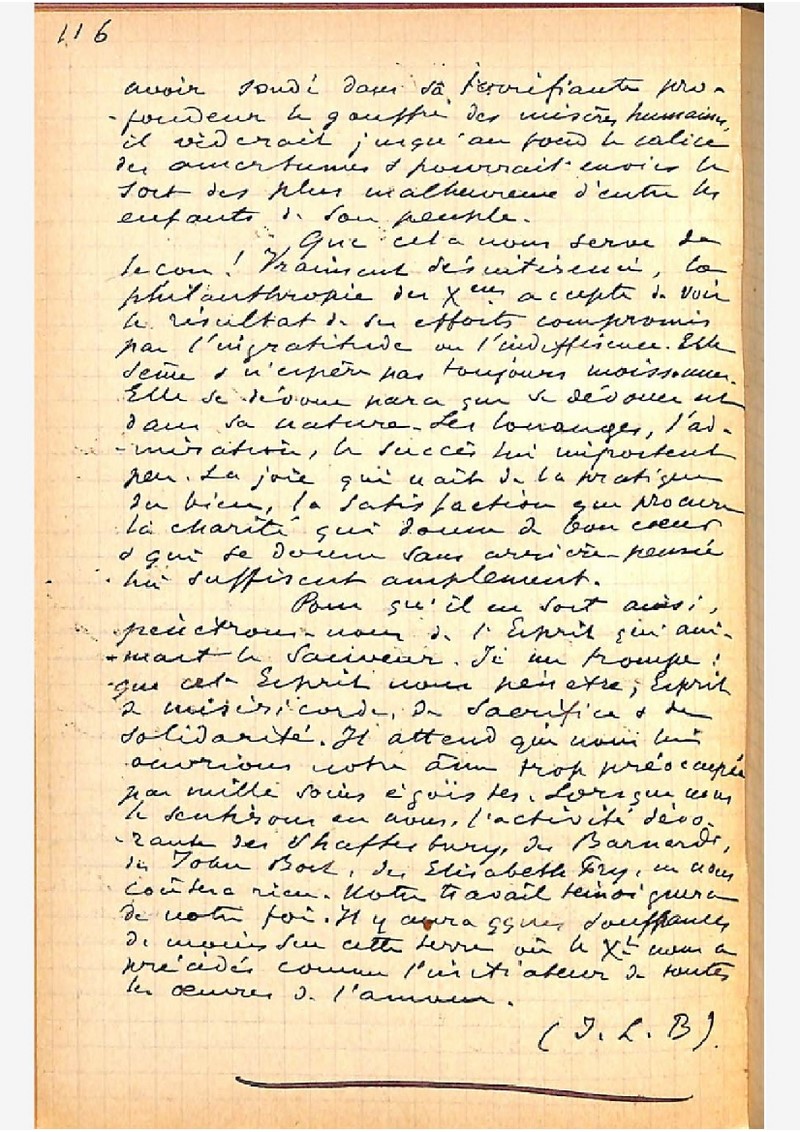 116
avoir sondé dans sa terrifiante pro-
-fondeur le gouffre des misères humaines,
il viderait jusqu'au fond le calice
des amertumes & pourrait envier le
sort des plus malheureux d'entre les
enfants de son peuple.
Que cela nous serve de
leçon! Vraiment désintéressée, la
philanthropie du Xème accepte de voir
le résultat de ses efforts compromis
par l'ingratitude ou l'indifférence. Elle
sème & n'espère pas toujours moissonner.
Elle se dévoue parce que se dévouer est
dans sa nature. Les louanges, l'ad-
-miration, le succès lui importent
peu. La joie qui naît de la pratique
du bien, la satisfaction que procure
la charité qui donne de bon cœur
& qui se donne sans arrière-pensée
lui suffisent amplement.
Pour qu'il en soit ainsi,
pénétrons-nous de l'Esprit qui ani-
-mait le Sauveur. Je me trompe:
que cet Esprit nous pénètre; Esprit
de miséricorde, de sacrifice & de
solidarité. Il attend que nous lui
ouvrions notre âme trop préoccupée
par mille soins égoïstes. Lorsque nous
le sentirons en nous, l'activité dévo-
-rante des Shaftesbury, des Barnardo,
des John Bost, des Elisabeth Fry, ne nous
coûtera rien. Notre travail témoignera
de notre foi. Il y aura qques souffrances
de moins sur cette terre où le Xt nous a
précédés comme l'initiateur de toutes
les œuvres de l'amour.
(J. L. B).